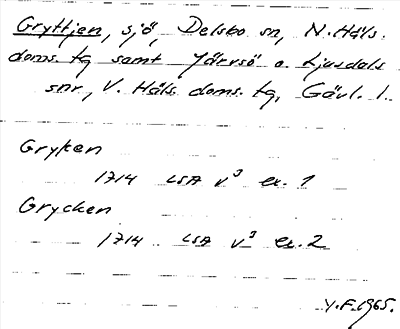 Gryttjen, sjö, Delsbo sn, N. Häls.
doms. tg samt Järvsö o. Ljusdals
snr, V. Häls. doms. tg, Gävl. l.
Gryken
1714 LSA v³ ex. 1
Grycken
1714 LSA v³ ex. 2
Y.F. 1965.